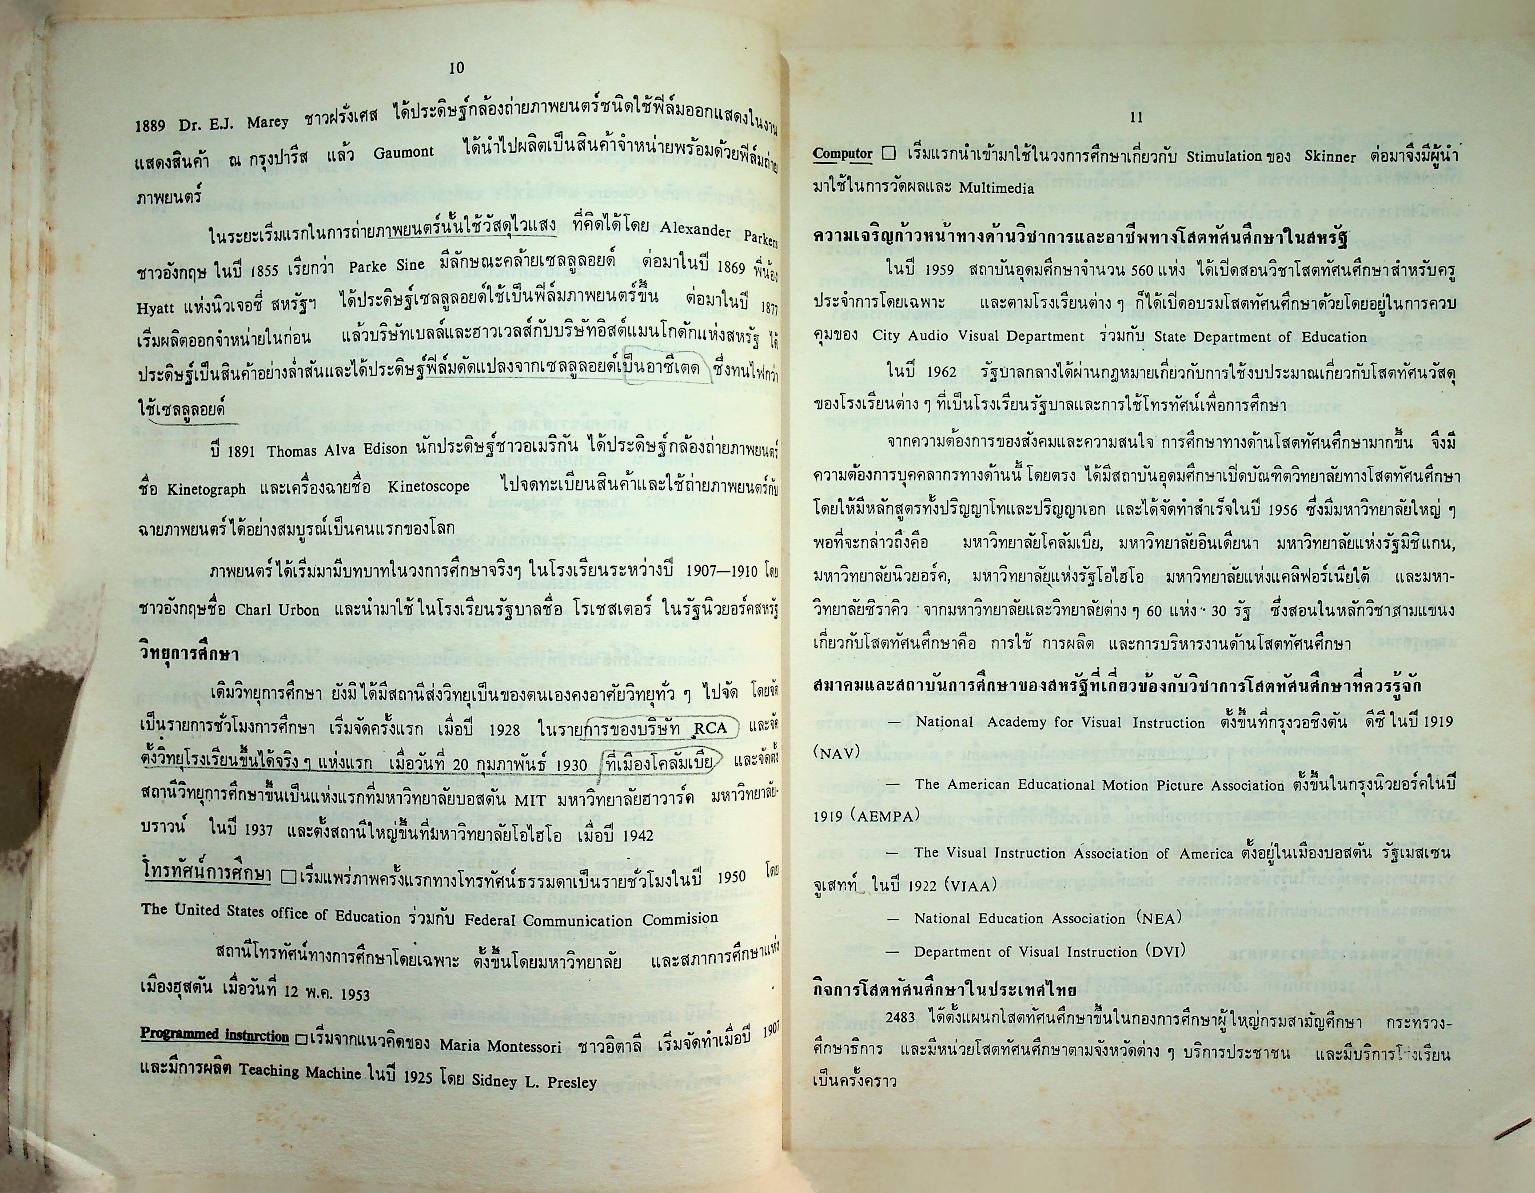 10
1889 Dr. E.J. Marey ชาวฝรั่งเศส ได้ประดิษฐ์กล้องถ่ายภาพยนตร์ชนิดใช้ฟิล์มออกแสดงในงาน
แสดงสินค้า ณ กรุงปารีส แล้ว Gaumont ได้นำไปผลิตเป็นสินค้าจำหน่ายพร้อมด้วยฟิล์มถ่าย
ภาพยนตร์
ในระยะเริ่มแรกในการถ่ายภาพยนตร์นั้นใช้วัสดุไวแสง ที่คิดได้โดย Alexander Parkers
ชาวอังกฤษ ในปี 1855 เรียกว่า Parke Sine มีลักษณะคล้ายเซลลูลอยด์ ต่อมาในปี 1869 พี่น้อง
Hyatt แห่งนิวเจอซี่ สหรัฐฯ ได้ประดิษฐ์เซลลูลอยด์ใช้เป็นฟิล์มภาพยนตร์ขึ้น ต่อมาในปี 1877
เริ่มผลิตออกจำหน่ายในก่อน แล้วบริษัทเบลล์และฮาวเวลส์กับบริษัทอิสต์แมนโกดักแห่งสหรัฐ ได้
ประดิษฐ์เป็นสินค้าอย่างล่ำสันและได้ประดิษฐ์ฟิล์มดัดแปลงจากเซลลูลอยด์เป็นอาซีเตด ซึ่งทนไฟกว่า
ใช้เซลลูลอยด์
ปี 1891 Thomas Alva Edison นักประดิษฐ์ชาวอเมริกัน ได้ประดิษฐ์กล้องถ่ายภาพยนตร์
ชื่อ Kinetograph และเครื่องฉายชื่อ Kinetoscope ไปจดทะเบียนสินค้าและใช้ถ่ายภาพยนตร์กับ
ฉายภาพยนตร์ได้อย่างสมบูรณ์เป็นคนแรกของโลก
ภาพยนตร์ได้เริ่มมามีบทบาทในวงการศึกษาจริงๆ ในโรงเรียนระหว่างปี 1907—1910 โดย
ชาวอังกฤษชื่อ Charl Urbon และนำมาใช้ในโรงเรียนรัฐบาลชื่อ โรเชสเตอร์ ในรัฐนิวยอร์คสหรัฐ
วิทยุการศึกษา
เดิมวิทยุการศึกษา ยังมิได้มีสถานีส่งวิทยุเป็นของตนเองคงอาศัยวิทยุทั่ว ๆ ไปจัด โดยจัด
เป็นรายการชั่วโมงการศึกษา เริ่มจัดครั้งแรก เมื่อปี 1928 ในรายการของบริษัท RCA และจัด
ตั้งวิทยุโรงเรียนขึ้นได้จริง ๆ แห่งแรก เมื่อวันที่ 20 กุมภาพันธ์ 1930 ที่เมืองโคลัมเบีย และจัดตั้ง
สถานีวิทยุการศึกษาขึ้นเป็นแห่งแรกที่มหาวิทยาลัยบอสตัน MIT มหาวิทยาลัยฮาวาร์ค มหาวิทยาลัย-
บราวน์ ในปี 1937 และตั้งสถานีใหญ่ขึ้นที่มหาวิทยาลัยโอไฮโอ เมื่อปี 1942
โทรทัศน์การศึกษา □ เริ่มแพร่ภาพครั้งแรกทางโทรทัศน์ธรรมดาเป็นรายชั่วโมงในปี 1950 โดย
The United States office of Education ร่วมกับ Federal Communication Commision
สถานีโทรทัศน์ทางการศึกษาโดยเฉพาะ ตั้งขึ้นโดยมหาวิทยาลัย และสภาการศึกษาแห่ง
เมืองฮุสตัน เมื่อวันที่ 12 พ.ค. 1953
Programmed insturction □ เริ่มจากแนวคิดของ Maria Montessori ชาวอิตาลี เริ่มจัดทำเมื่อปี 1907
และมีการผลิต Teaching Machine ในปี 1925 โดย Sidney L. Presley
11
Computor □ เริ่มแรกนำเข้ามาใช้ในวงการศึกษาเกี่ยวกับ Stimulation ของ Skinner ต่อมาจึงมีผู้นำ
มาใช้ในการวัดผลและ Multimedia
ความเจริญก้าวหน้าทางด้านวิชาการและอาชีพทางโสตทัศนศึกษาในสหรัฐ
ในปี 1959 สถาบันอุดมศึกษาจำนวน 560 แห่ง ได้เปิดสอนวิชาโสตทัศนศึกษาสำหรับครู
ประจำการโดยเฉพาะ และตามโรงเรียนต่าง ๆ ก็ได้เปิดอบรมโสตทัศนศึกษาด้วยโดยอยู่ในการควบ
คุมของ City Audio Visual Department ร่วมกับ State Department of Education
ในปี 1962 รัฐบาลกลางได้ผ่านกฎหมายเกี่ยวกับการใช้งบประมาณเกี่ยวกับโสตทัศนวัสดุ
ของโรงเรียนต่าง ๆ ที่เป็นโรงเรียนรัฐบาลและการใช้โทรทัศน์เพื่อการศึกษา
จากความต้องการของสังคมและความสนใจ การศึกษาทางด้านโสตทัศนศึกษามากขึ้น จึงมี
ความต้องการบุคคลากรทางด้านนี้ โดยตรง ได้มีสถาบันอุดมศึกษาเปิดบัณฑิตวิทยาลัยทางโสตทัศนศึกษา
โดยให้มีหลักสูตรทั้งปริญญาโทและปริญญาเอก และได้จัดทำสำเร็จในปี 1956 ซึ่งมีมหาวิทยาลัยใหญ่ ๆ
พอที่จะกล่าวถึงคือ มหาวิทยาลัยโคลัมเบีย, มหาวิทยาลัยอินเดียนา มหาวิทยาลัยแห่งรัฐมิชิแกน,
มหาวิทยาลัยนิวยอร์ค, มหาวิทยาลัยแห่งรัฐโอไฮโอ มหาวิทยาลัยแห่งแคลิฟอร์เนียใต้ และมหา-
วิทยาลัยซิราคิว จากมหาวิทยาลัยและวิทยาลัยต่าง ๆ 60 แห่ง 30 รัฐ ซึ่งสอนในหลักวิชาสามแขนง
เกี่ยวกับโสตทัศนศึกษาคือ การใช้ การผลิต และการบริหารงานด้านโสตทัศนศึกษา
สมาคมและสถาบันการศึกษาของสหรัฐที่เกี่ยวข้องกับวิชาการโสตทัศนศึกษาที่ควรรู้จัก
— National Academy for Visual Instruction ตั้งขึ้นที่กรุงวอชิงตัน ดีซี ในปี 1919
(NAV)
— The American Educational Motion Picture Association ตั้งขึ้นในกรุงนิวยอร์คในปี
1919 (AEMPA)
— The Visual Instruction Association of America ตั้งอยู่ในเมืองบอสตัน รัฐเมสเซน
จูเสทท์ ในปี 1922 (VIAA)
— National Education Association (NEA)
— Department of Visual Instruction (DVI)
กิจการโสตทัศนศึกษาในประเทศไทย
2483 ได้ตั้งแผนกโสตทัศนศึกษาขึ้นในกองการศึกษาผู้ใหญ่กรมสามัญศึกษา กระทรวง-
ศึกษาธิการ และมีหน่วยโสตทัศนศึกษาตามจังหวัดต่าง ๆ บริการประชาชน และมีบริการโรงเรียน
เป็นครั้งคราว